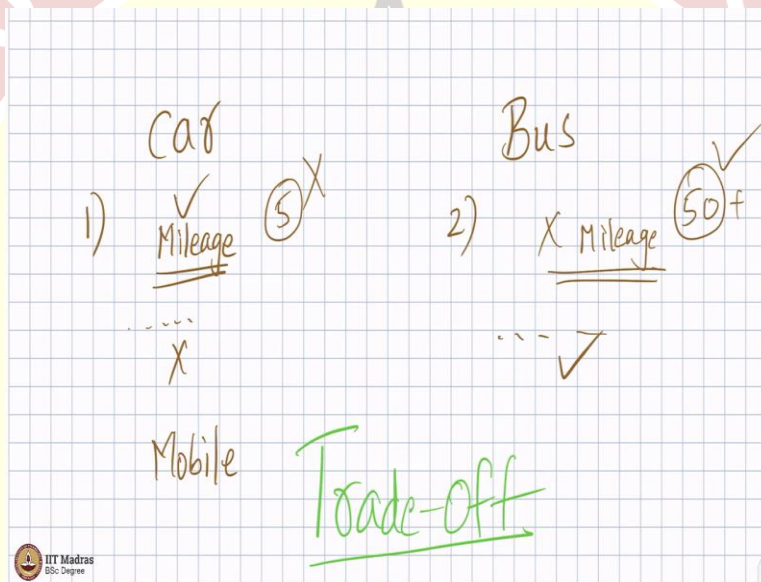 Car
Bus
1) ✓ Mileage 5 X
2) X Mileage 50+ ✓
..... X
---- ✓
Mobile
Trade-Off
IIT Madras
BSc Degree